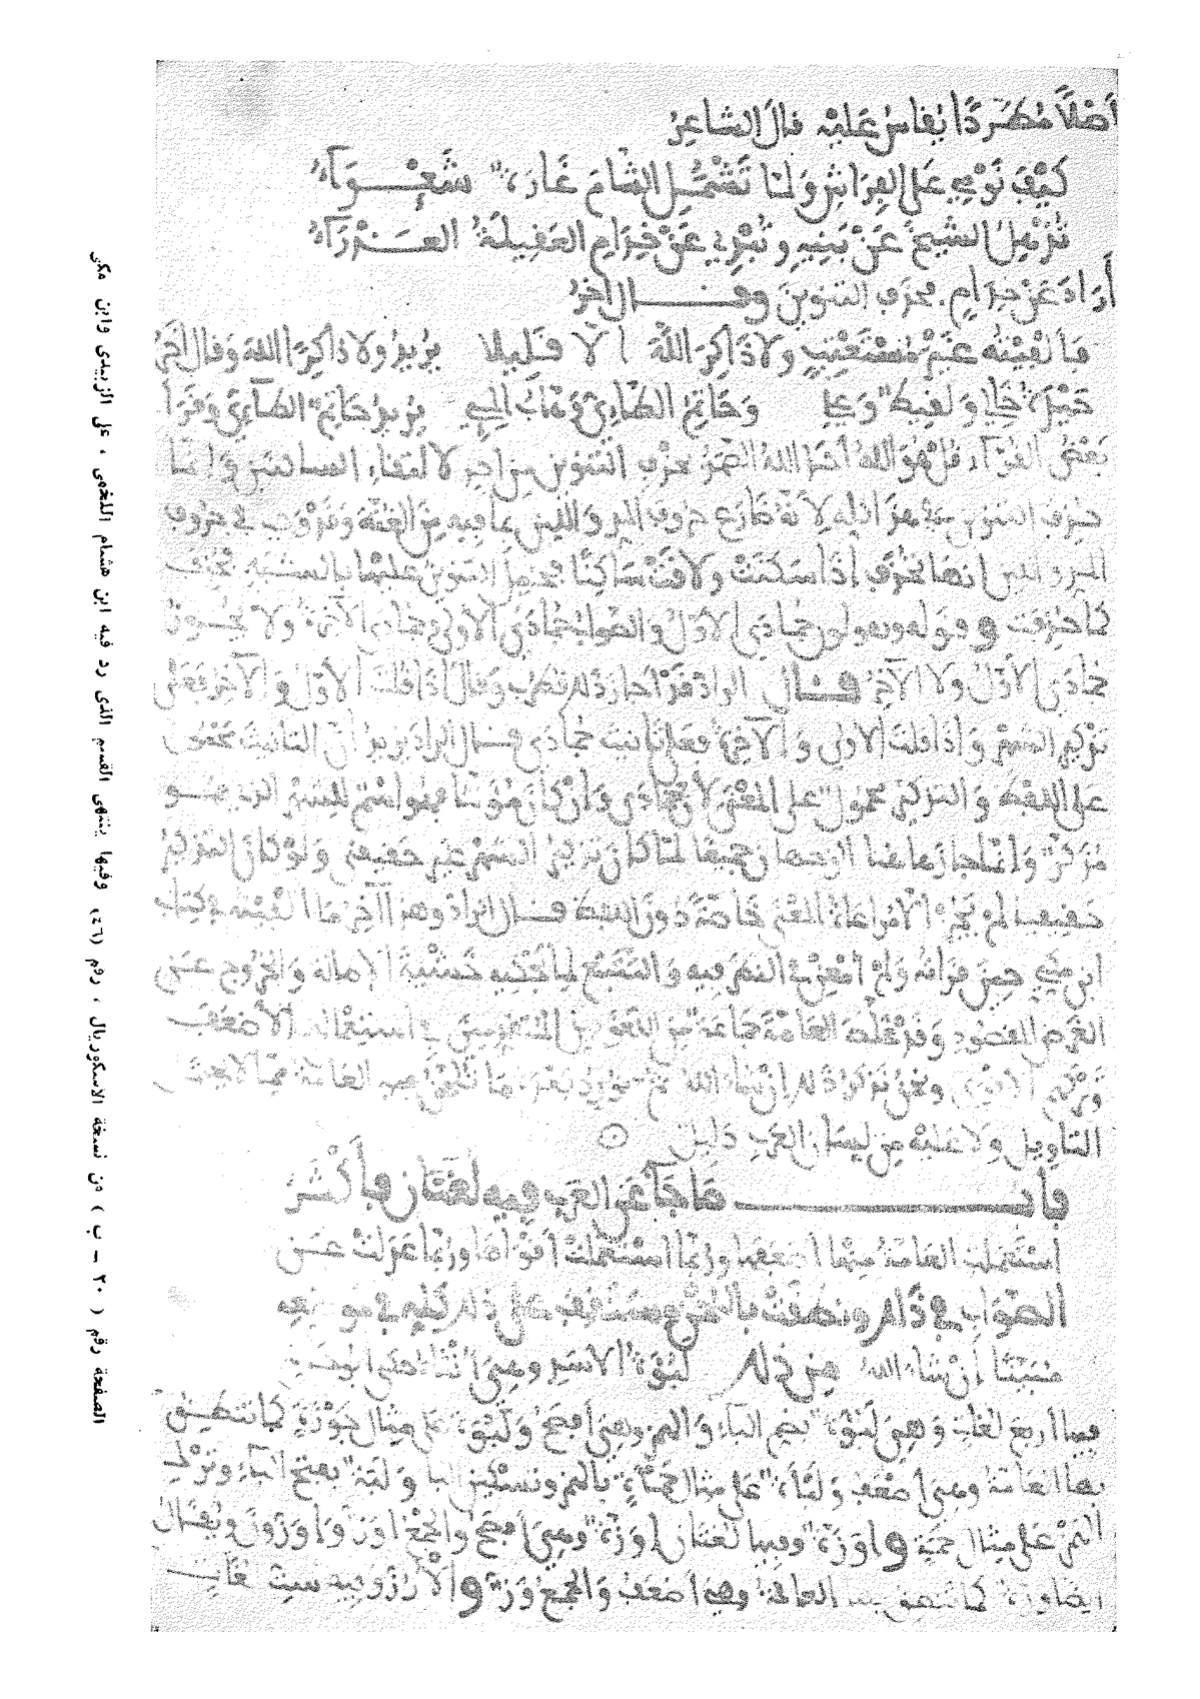 أصلا مطردا يقاس عليه قال الشاعر
كيف نومي على الفراش ولما تشمل الشام غارة شعواء
تذهل الشيخ عن بنيه وتبدي عن خدام العقيلة العذراء
أراد عن خدام فحذف التنوين وقال آخر
فألفيته غير مستعتب ولا ذاكر الله إلا قليلا يريد ولا ذاكرا الله وقال آخر
حيدة خالي ولقيط وعلي وحاتم الطائي وهاب المئي يريد حاتم الطائي وقرأ
بعض القراء قل هو الله أحد الله الصمد بحذف التنوين من أحد لالتقاء الساكنين وإنما
حذف التنوين في هذا كله لأنه ضارع حروف المد واللين بما فيه من الغنة وحروف
المد واللين إنها تحذف إذا سكنت ولاقت ساكنا فحمل التنوين عليها بالشبه فحذف
كما حذفت وقوله ويقولون جمادى الأول والصواب جمادى الأولى وجمادى الآخرة ولا يجوز
جمادى الأول ولا الآخر قال الراد قد أجاز ذلك وقال إذا قلت الأول والآخر فعلى
تذكير الشهر وإذا قلت الأولى والآخرة فعلى تأنيث جمادى قال الراد يريد أن التأنيث محمول
على اللفظ والتذكير محمول على المعنى لأن جمادى وإن كان مؤنثا فهو اسم للشهر الذي هو
مذكر وإنما جاز هاهنا الوجهان جميعا لما كان تذكير الشهر غير حقيقي ولو كان التذكير
حقيقيا لم يجز إلا مراعاة المعنى خاصة دون اللفظ قال الراد وهذا آخر ما ألفيته في كتاب
ابن مكي حين قرأته ولم أمعن النظر فيه والتتبع لما يحتويه خشية الإطالة والخروج عن
الغرض المقصود وقد غلط العامة جماعة من اللغويين المتقدمين في استعمال الأضعف
ونحن نذكر ذلك إن شاء الله ثم نورد بعده ما تلحن فيه العامة مما لا يحتمل
التأويل ولا عليه من لسان العرب دليل
باب ما جاء عن العرب فيه لغتان فأكثر
استعملت العامة منها أضعفها وربما استعملت أقواها وربما عدلت عن
الصواب في ذلك ونطقت باللحن وستقف على ذلك كله في موضعه
مبينا إن شاء الله من ذلك لبؤة الأسد وهي أنثاه
فيها أربع لغات وهي لبؤة بضم الباء والهمز وهي أفصح ولبوة على مثال جوزة كما تنطق
بها العامة وهي أضعف ولبأة على مثال حمأة بالهمز وتسكين الباء ولبة بفتح الباء وترك
الهمز على مثال حمة وإوزة وفيها لغتان إوزة وهي أفصح والجمع إوز وإوزون ويقال
أيضا وزة كما تنطق به العامة وهي أضعف والجمع وز والأرز وفيه ست لغات
الصفحة رقم ( ٢٠ – ب ) من نسخة الاسكوريال ، رقم (٤٦) وفيها ينتهى القسم الذى رد فيه ابن هشام اللخمى ، على الزبيدى وابن مكى